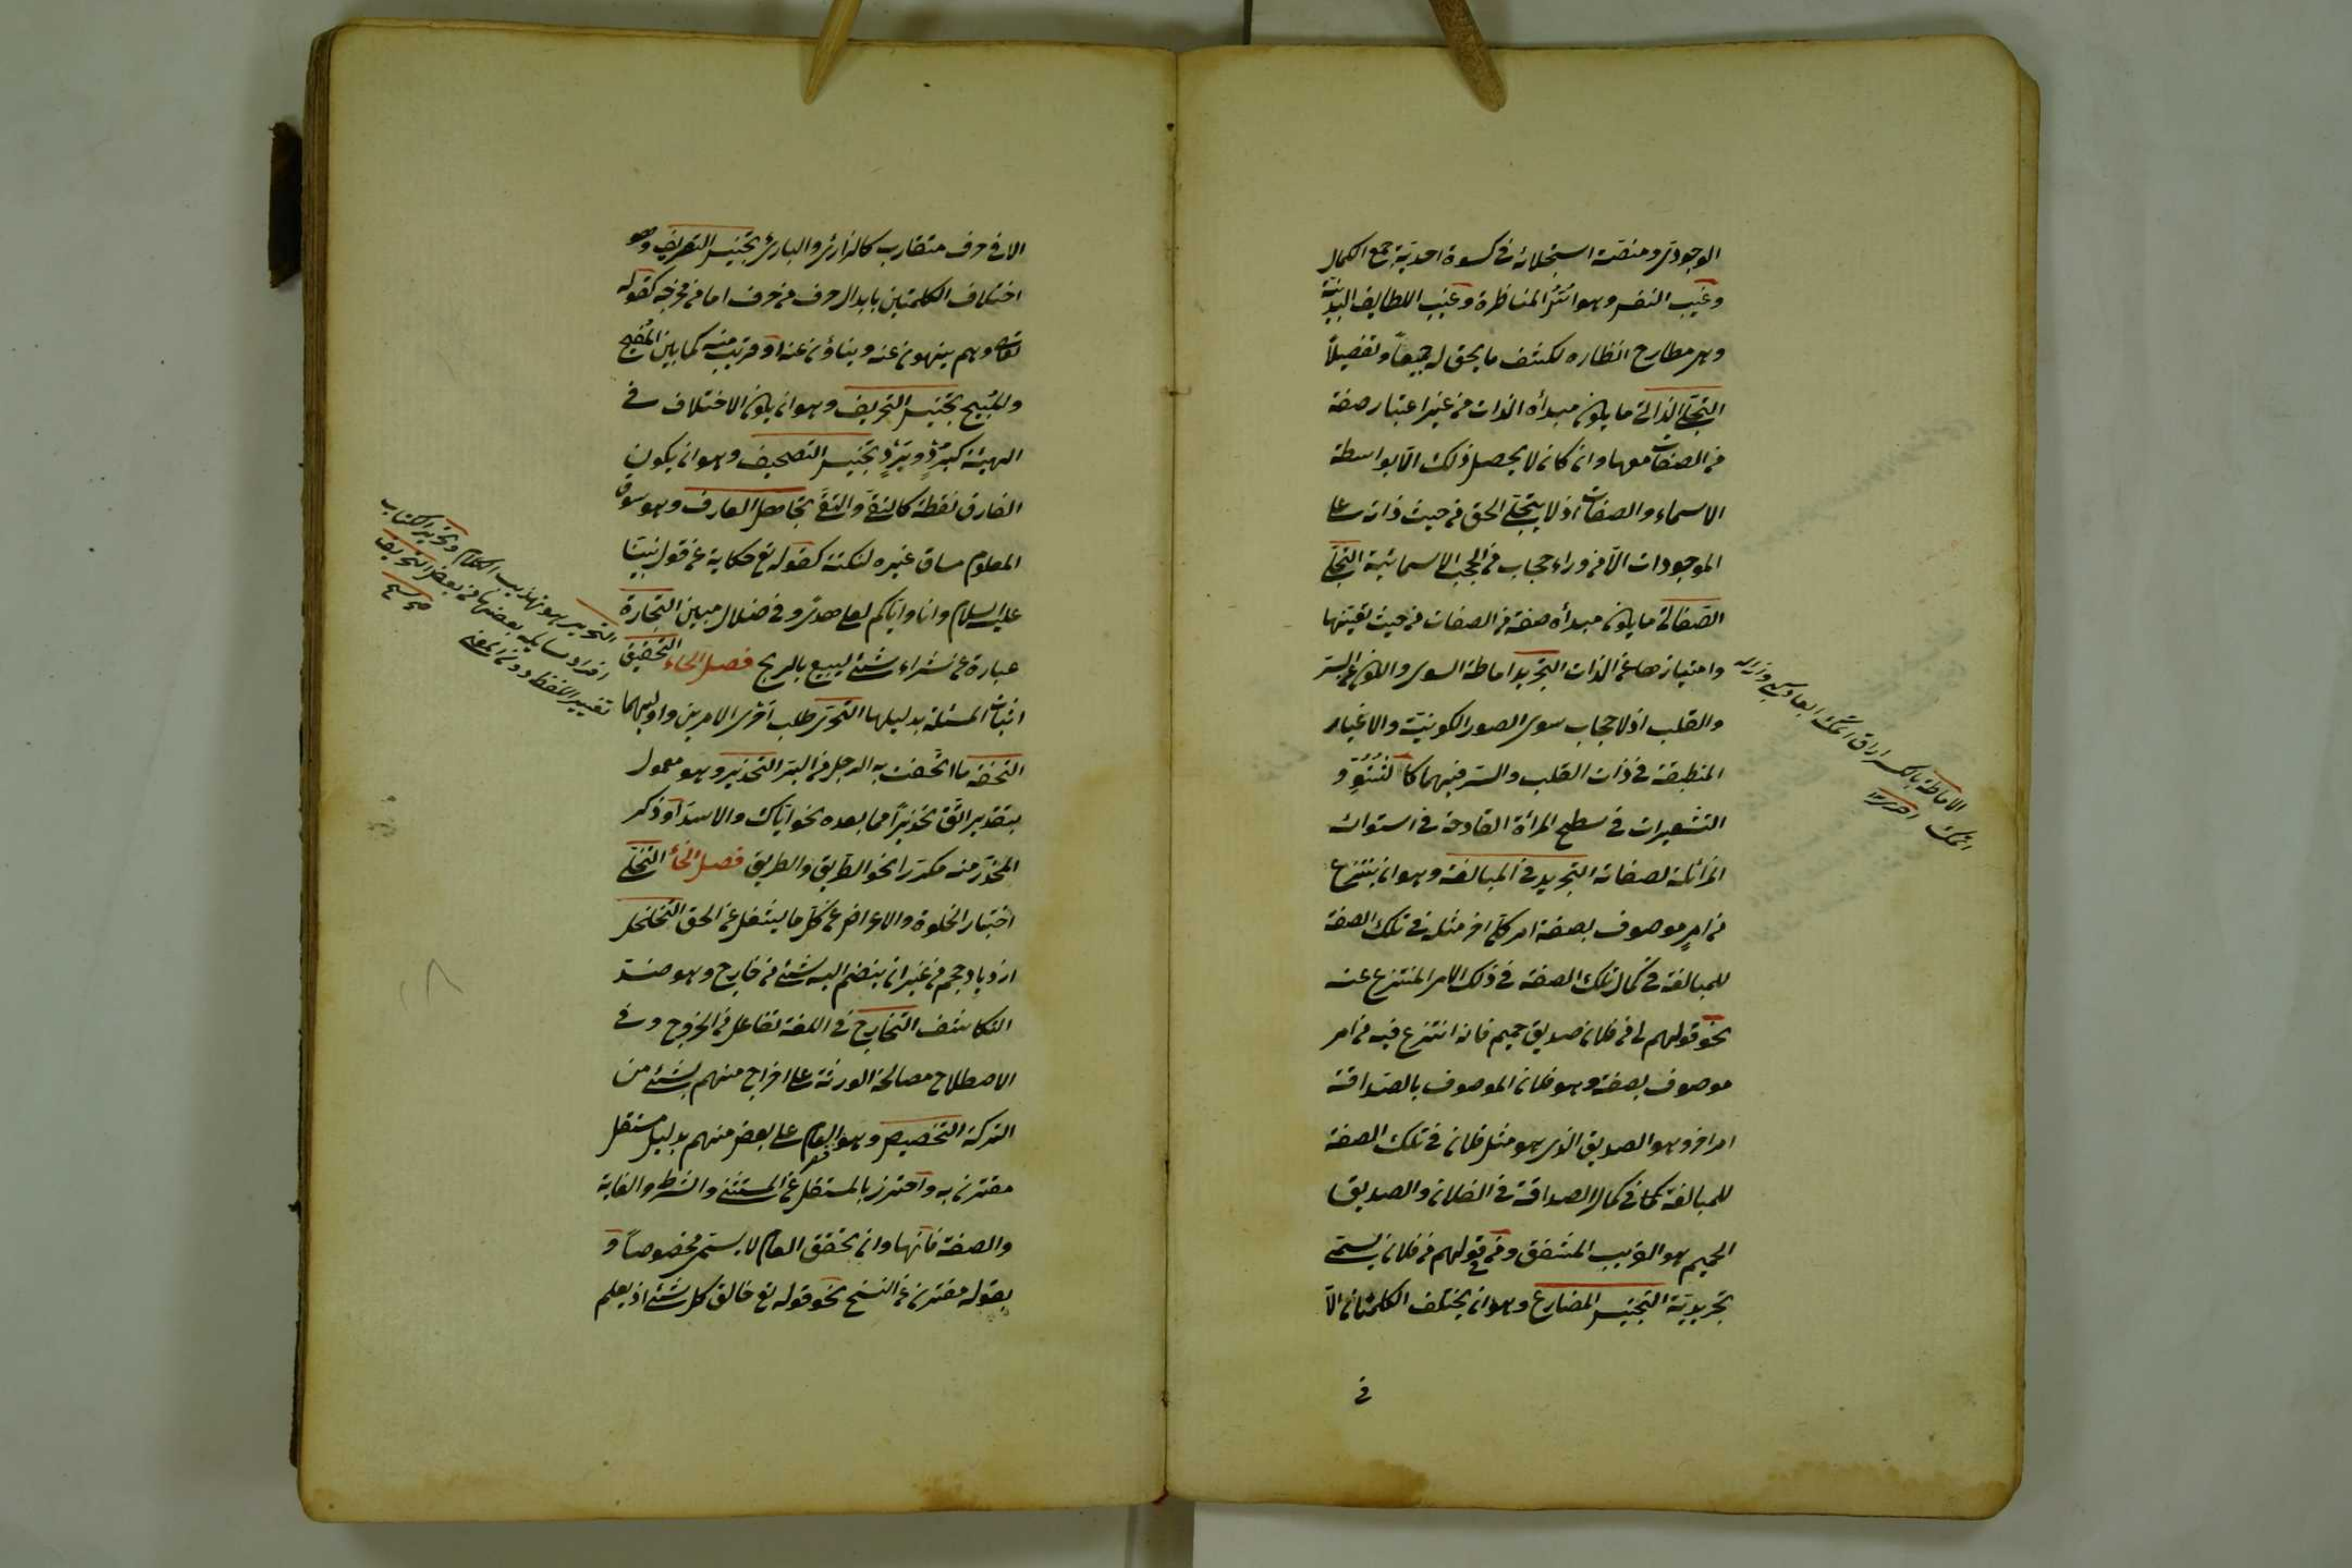 الوجودى ومنصة استجلائه فى كسوة احدية جمع الكمال
وغيب النفس وهو انتن المناظرة وغيب اللطايف البدنية
وهى مطارح انظاره لكشف ما يحق له جميعاً وتفصيلاً
التجلى الذاتى ما يكون مبدأه الذات من غير اعتبار صفة
من الصفات معها وان كان لا يحصل ذلك الا بواسطة
الاسماء والصفات اذ لا يتجلى الحق من حيث ذاته على
الموجودات الا من وراء حجاب من الحجب الاسمائية التجلى
الصفاتى ما يكون مبدأه صفة من الصفات من حيث تعينها
وامتيازها عن الذات التجريد اماطة السوى والكون عن السر
والقلب اذ لا حجاب سوى الصور الكونية والاغيار
المنطبعة فى ذات القلب والسر فيهما كالنتو و
التشعيرات فى سطح المرأة القادحة فى استوائه
المزائلة لصفائه التجريد فى المبالغة وهو ان ينتزع
من امر موصوف بصفة امر آخر مثله فى تلك الصفة
للمبالغة فى كمال تلك الصفة فى ذلك الامر المنتزع عنه
نحو قولهم لى من فلان صديق حميم فانه انتزع فيه من امر
موصوف بصفة وهو فلان الموصوف بالصداقة
امر اخر وهو الصديق الذى هو مثل فلان فى تلك الصفة
للمبالغة فى كمال الصداقة فى الفلان والصديق
الحميم هو القريب المشفق ومن فى قولهم من فلان يسمى
تجريدية التجنيس المضارع وهو ان يختلف الكلمتان الا
فى
الاماطة بالكسر
الا فى حرف متقارب كالذارئ والبارئ تجنيس التصريف وهو
اختلاف الكلمتين بابدال حرف من حرف اما من مخرجه كقوله
تعالى وهم ينهون عنه وينأون عنه او قريب منه كما بين المفيح
والمبيح تجنيس التحريف وهو ان يكون الاختلاف فى
الهيئة كبُرد وبَرد تجنيس التصحيف وهو ان يكون
الفارق نقطة كانقى واتقى تجاهل العارف وهو سوق
المعلوم مساق غيره لنكتة كقوله تع حكاية عن قول نبينا
عليه السلام وانا واياكم لعلى هدى او فى ضلال مبين التجارة
عبارة عن شراء شئ ليبيع بالربح فصل الحاء التحقيق
اثبات المسئلة بدليلها التحرى طلب احرى الامرين واوليهما
التحفة ما اتحفت به الرجل من البر التحذير وهو معمول
بتقدير اتق تحذيراً مما بعده نحو اياك والاسد او ذكر
المحذر منه مكررا نحو الطريق والطريق فصل الخاء التخلى
اختيار الخلوة والاعراض عن كل ما يشغل عن الحق التخلخل
ازدياد حجم من غير ان ينضم اليه شئ من خارج وهو ضد
التكاثف التخارج فى اللغة تفاعل من الخروج وفى
الاصطلاح مصالحة الورثة على اخراج منهم بشئ من
التركة التخصيص وهو قصر العام على بعض منهم بدليل مستقل
مقترن به واحترز بالمستقل عن المستثنى والشرط والغاية
والصفة فانها وان تحقق العام لا يسمى مخصوصاً و
بقوله مقترن عن النسخ نحو قوله تع خالق كل شئ اذ يعلم
التحرير هو تهذيب الكلام وتحرير الكتاب
التحريف
تغيير اللفظ دون المعنى